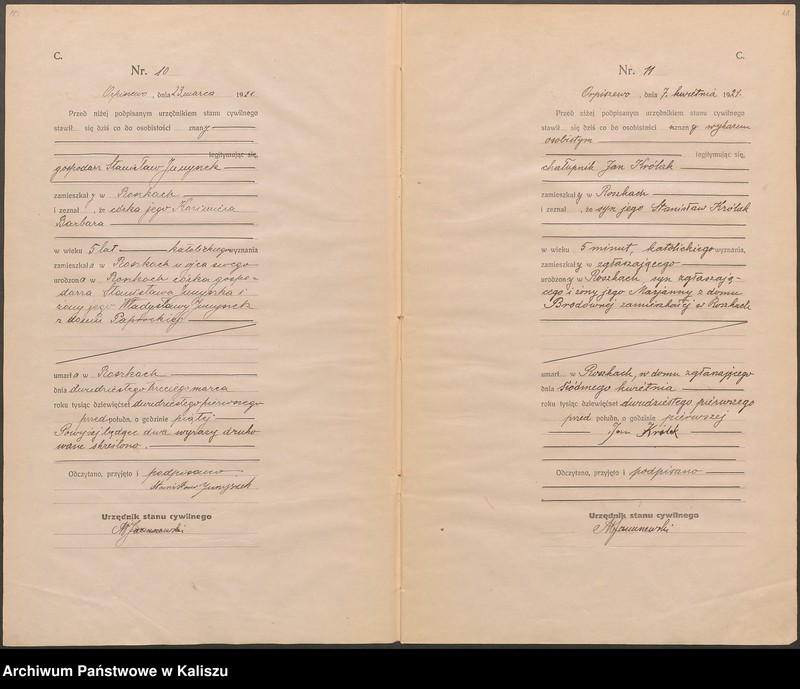 C.
Nr. 10
Orpiszewo, dnia 23 marca 1921
Przed niżej podpisanym urzędnikiem stanu cywilnego
stawił się dziś co do osobistości znany
legitymując się,
gospodarz Stanisław Junyszek
zamieszkały w Roszkach
i zeznał, że córka jego Kazimiera
Barbara
w wieku 5 lat katolickiego wyznania
zamieszkała w Roszkach u ojca swego
urodzona w Roszkach córka gospo-
darza Stanisława Junyszka i
żony jego Władysławy Junyszek
z domu
umarła w Roszkach
dnia dwudziestego trzeciego marca
roku tysiąc dziewięćset dwudziestego pierwszego
przed połudn. o godzinie piątej
Powyżej będące dwa wyrazy druko
wane skreślono.
Odczytano, przyjęto i podpisano
Stanisław Junyszek
Urzędnik stanu cywilnego
C.
Nr. 11
Orpiszewo, dnia 7. kwietnia 1921.
Przed niżej podpisanym urzędnikiem stanu cywilnego
stawił się dziś co do osobistości uznany wykazem
osobistym
legitymując się,
chałupnik Jan Królak
zamieszkały w Roszkach
i zeznał, że syn jego Stanisław Królak
w wieku 5 minut, katolickiego wyznania,
zamieszkały w zgłaszającego
urodzony w Roszkach, syn zgłaszają-
cego i żony jego Marjanny z domu
Brodównej zamieszkałej w Roszkach
umarł w Roszkach, w domu zgłaszającego
dnia siódmego kwietnia
roku tysiąc dziewięćset dwudziestego pierwszego
przed połudn. o godzinie pierwszej
Jan Królak
Odczytano, przyjęto i podpisano
Urzędnik stanu cywilnego
Archiwum Państwowe w Kaliszu